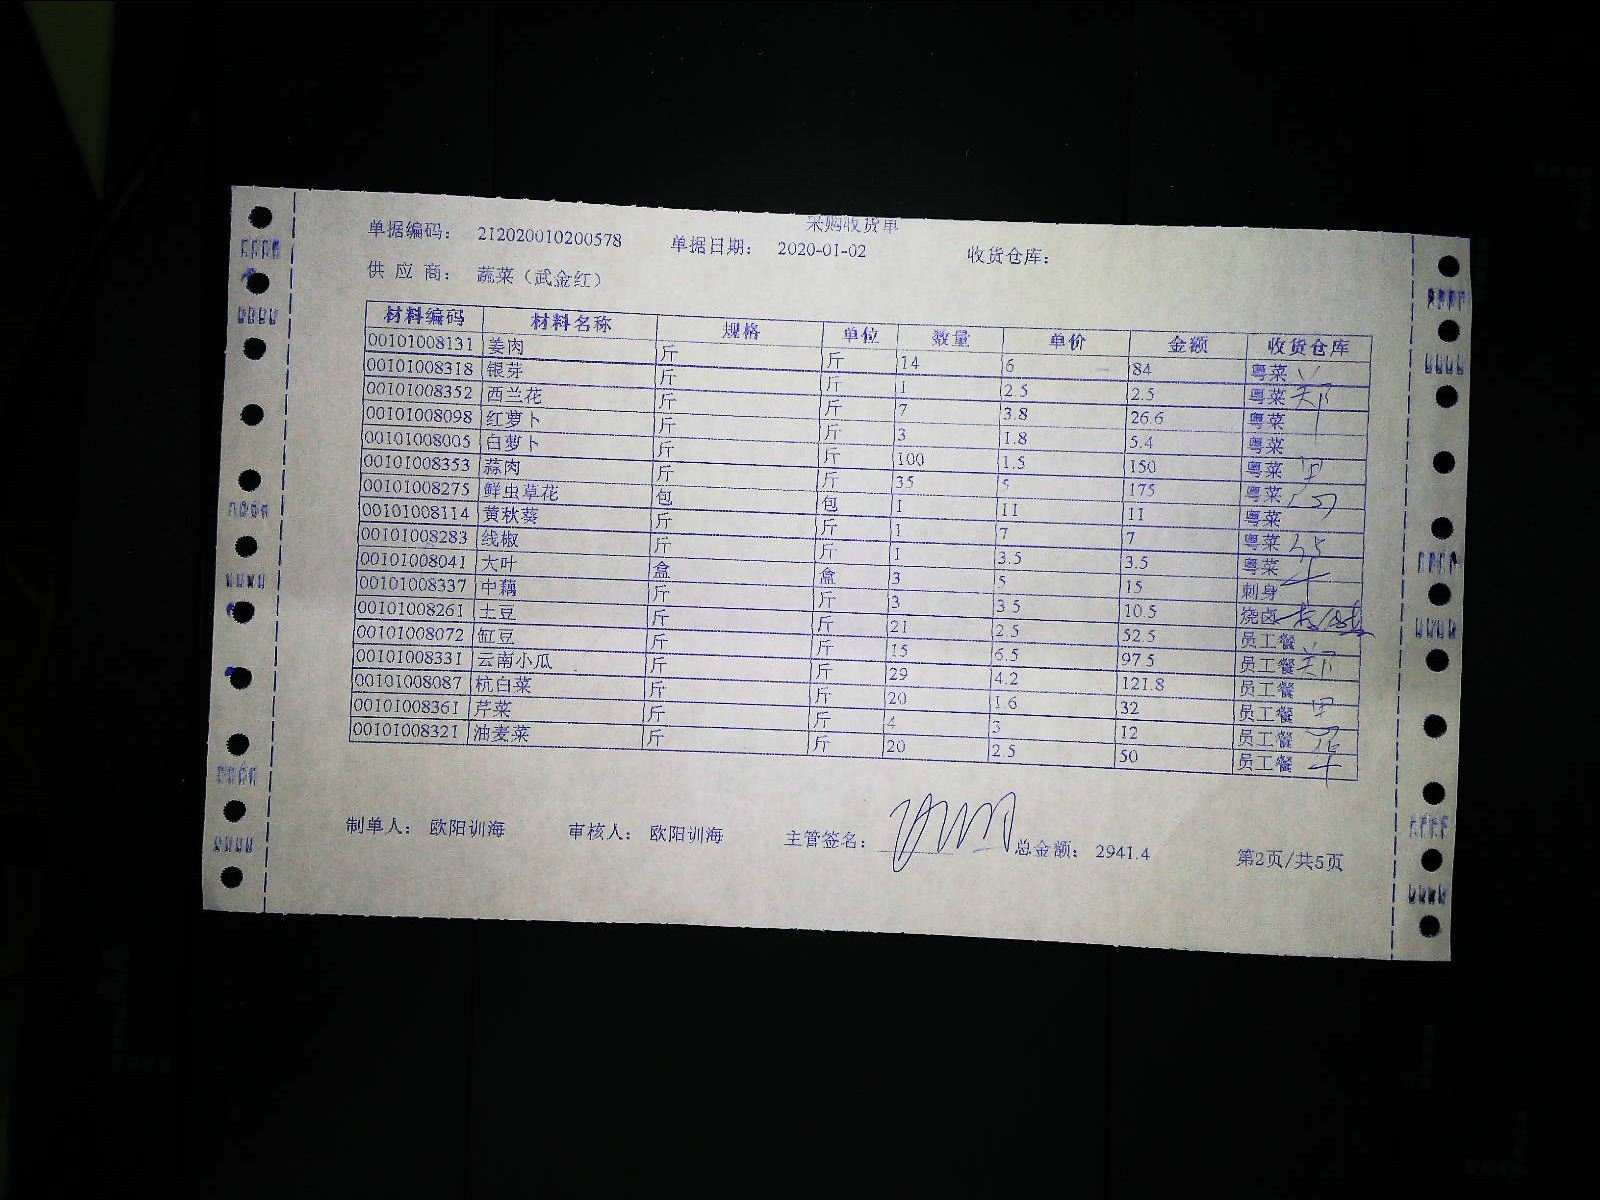 采购收货单
单据编码： 212020010200578 单据日期： 2020-01-02 收货仓库：
供 应 商： 蔬菜（武金红）
材料编码 材料名称 规格 单位 数量 单价 金额 收货仓库
00101008131 姜肉 斤 斤 14 6 84 粤菜
00101008318 银芽 斤 斤 1 2.5 2.5 粤菜
00101008352 西兰花 斤 斤 7 3.8 26.6 粤菜
00101008098 红萝卜 斤 斤 3 1.8 5.4 粤菜
00101008005 白萝卜 斤 斤 100 1.5 150 粤菜
00101008353 蒜肉 斤 斤 35 5 175 粤菜
00101008275 鲜虫草花 包 包 1 11 11 粤菜
00101008114 黄秋葵 斤 斤 1 7 7 粤菜
00101008283 线椒 斤 斤 1 3.5 3.5 粤菜
00101008041 大叶 盒 盒 3 5 15 刺身
00101008337 中藕 斤 斤 3 3.5 10.5 烧卤
00101008261 土豆 斤 斤 21 2.5 52.5 员工餐
00101008072 缸豆 斤 斤 15 6.5 97.5 员工餐
00101008331 云南小瓜 斤 斤 29 4.2 121.8 员工餐
00101008087 杭白菜 斤 斤 20 1.6 32 员工餐
00101008361 芹菜 斤 斤 4 3 12 员工餐
00101008321 油麦菜 斤 斤 20 2.5 50 员工餐
制单人： 欧阳训海 审核人： 欧阳训海 主管签名： 总金额： 2941.4 第2页/共5页